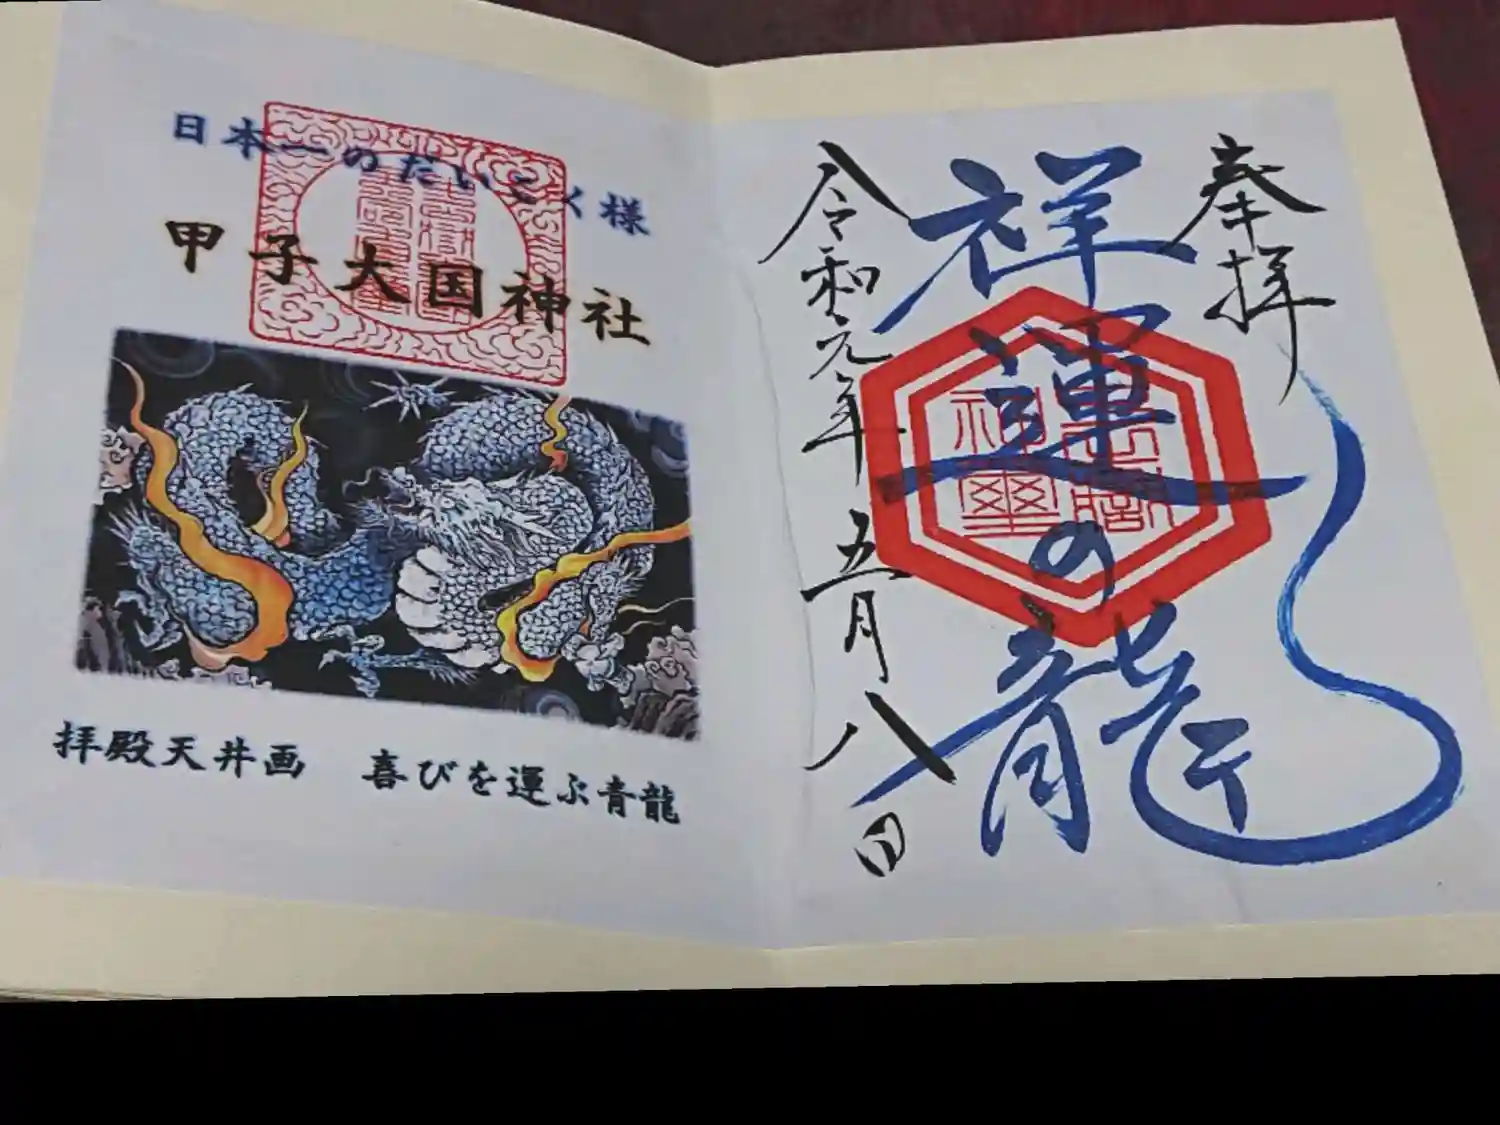 奉拝
祥運の青龍
令和元年五月八日
日本一のだいこく様
甲子大国神社
拝殿天井画　喜びを運ぶ青龍